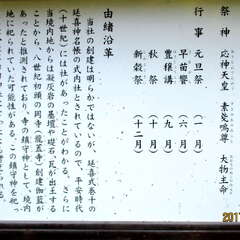 祭神　応神天皇　素戔嗚尊　大物主命
行事　元旦祭　(一月)
早苗響　(六月)
豊穣講　(七月)
秋祭　(十月)
新穀祭　(十二月)
由緒沿革
当社の創建は明らかではないが、延喜式巻十の
延喜神名帳の式内社とされているので、平安時代
(十世紀)には社があったことがわかる。さらに
当境内地からは凝灰岩の基壇や礎石・瓦が出土する
ことから、八世紀初頭の岡寺(龍蓋寺)創建伽藍が
あったと推測されており、寺の鎮守神として、境内
地に祀られていた可能性がある。この鎮守神を祀っ
201